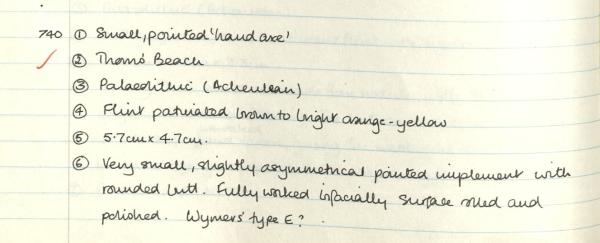 740 ① Small, pointed 'hand axe'
② Thorns Beach
③ Palaeolithic (Acheulean)
④ Flint patinated brown to bright orange-yellow
⑤ 5.7cm x 4.7cm.
⑥ Very small, slightly asymmetrical pointed implement with
rounded butt. Fully worked bifacially Surface rolled and
polished. Wymers' type E?